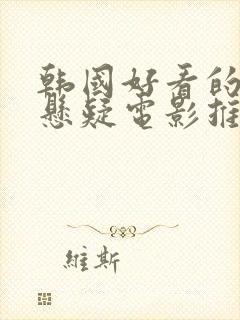 韩国好看的
悬疑电影推
維斯